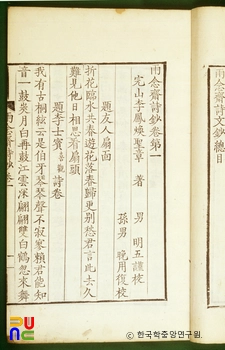 雨念齋詩文鈔總目
雨念齋詩鈔卷第一
完山李鳳煥聖章 著 男 明五謹校
孫男 晩用復校
題友人扇面
折花臨水共春遊花落春歸更別愁君言此去久
難見他日相思看扇頭
題李士賓喜觀詩卷
我有古桐絃云是伯牙琴琴聲不寂寞賴君能知
音一鼓炎月白再鼓江雲深翩翩雙白鶴忽來舞
雨念齋詩鈔卷一
ⓒ 한국학중앙연구원.